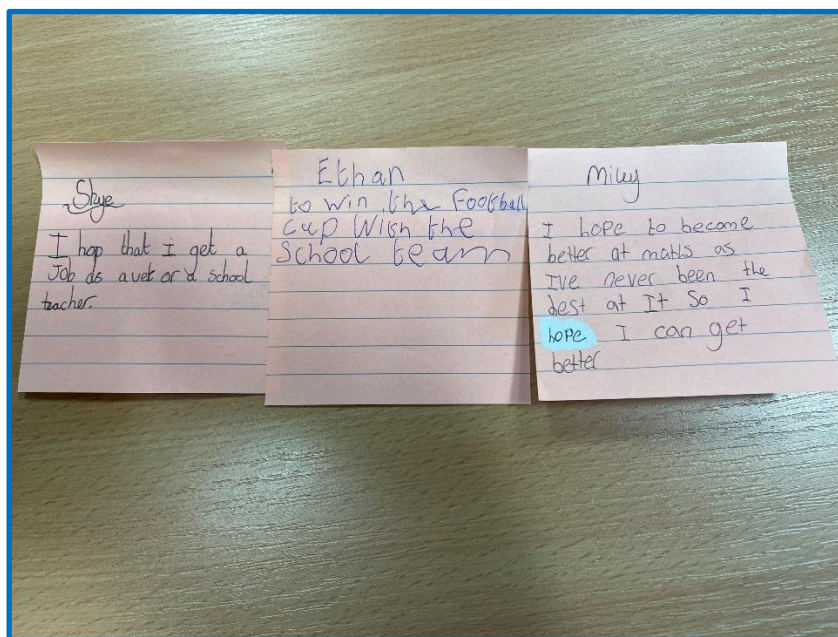 Skye
I hop that i get a
Job as a vet or a school
teacher.
Ethan
to win the Football
cup With the
School team
Miley
I hope to become
better at maths as
I've never been the
best at It So I
hope I can get
better